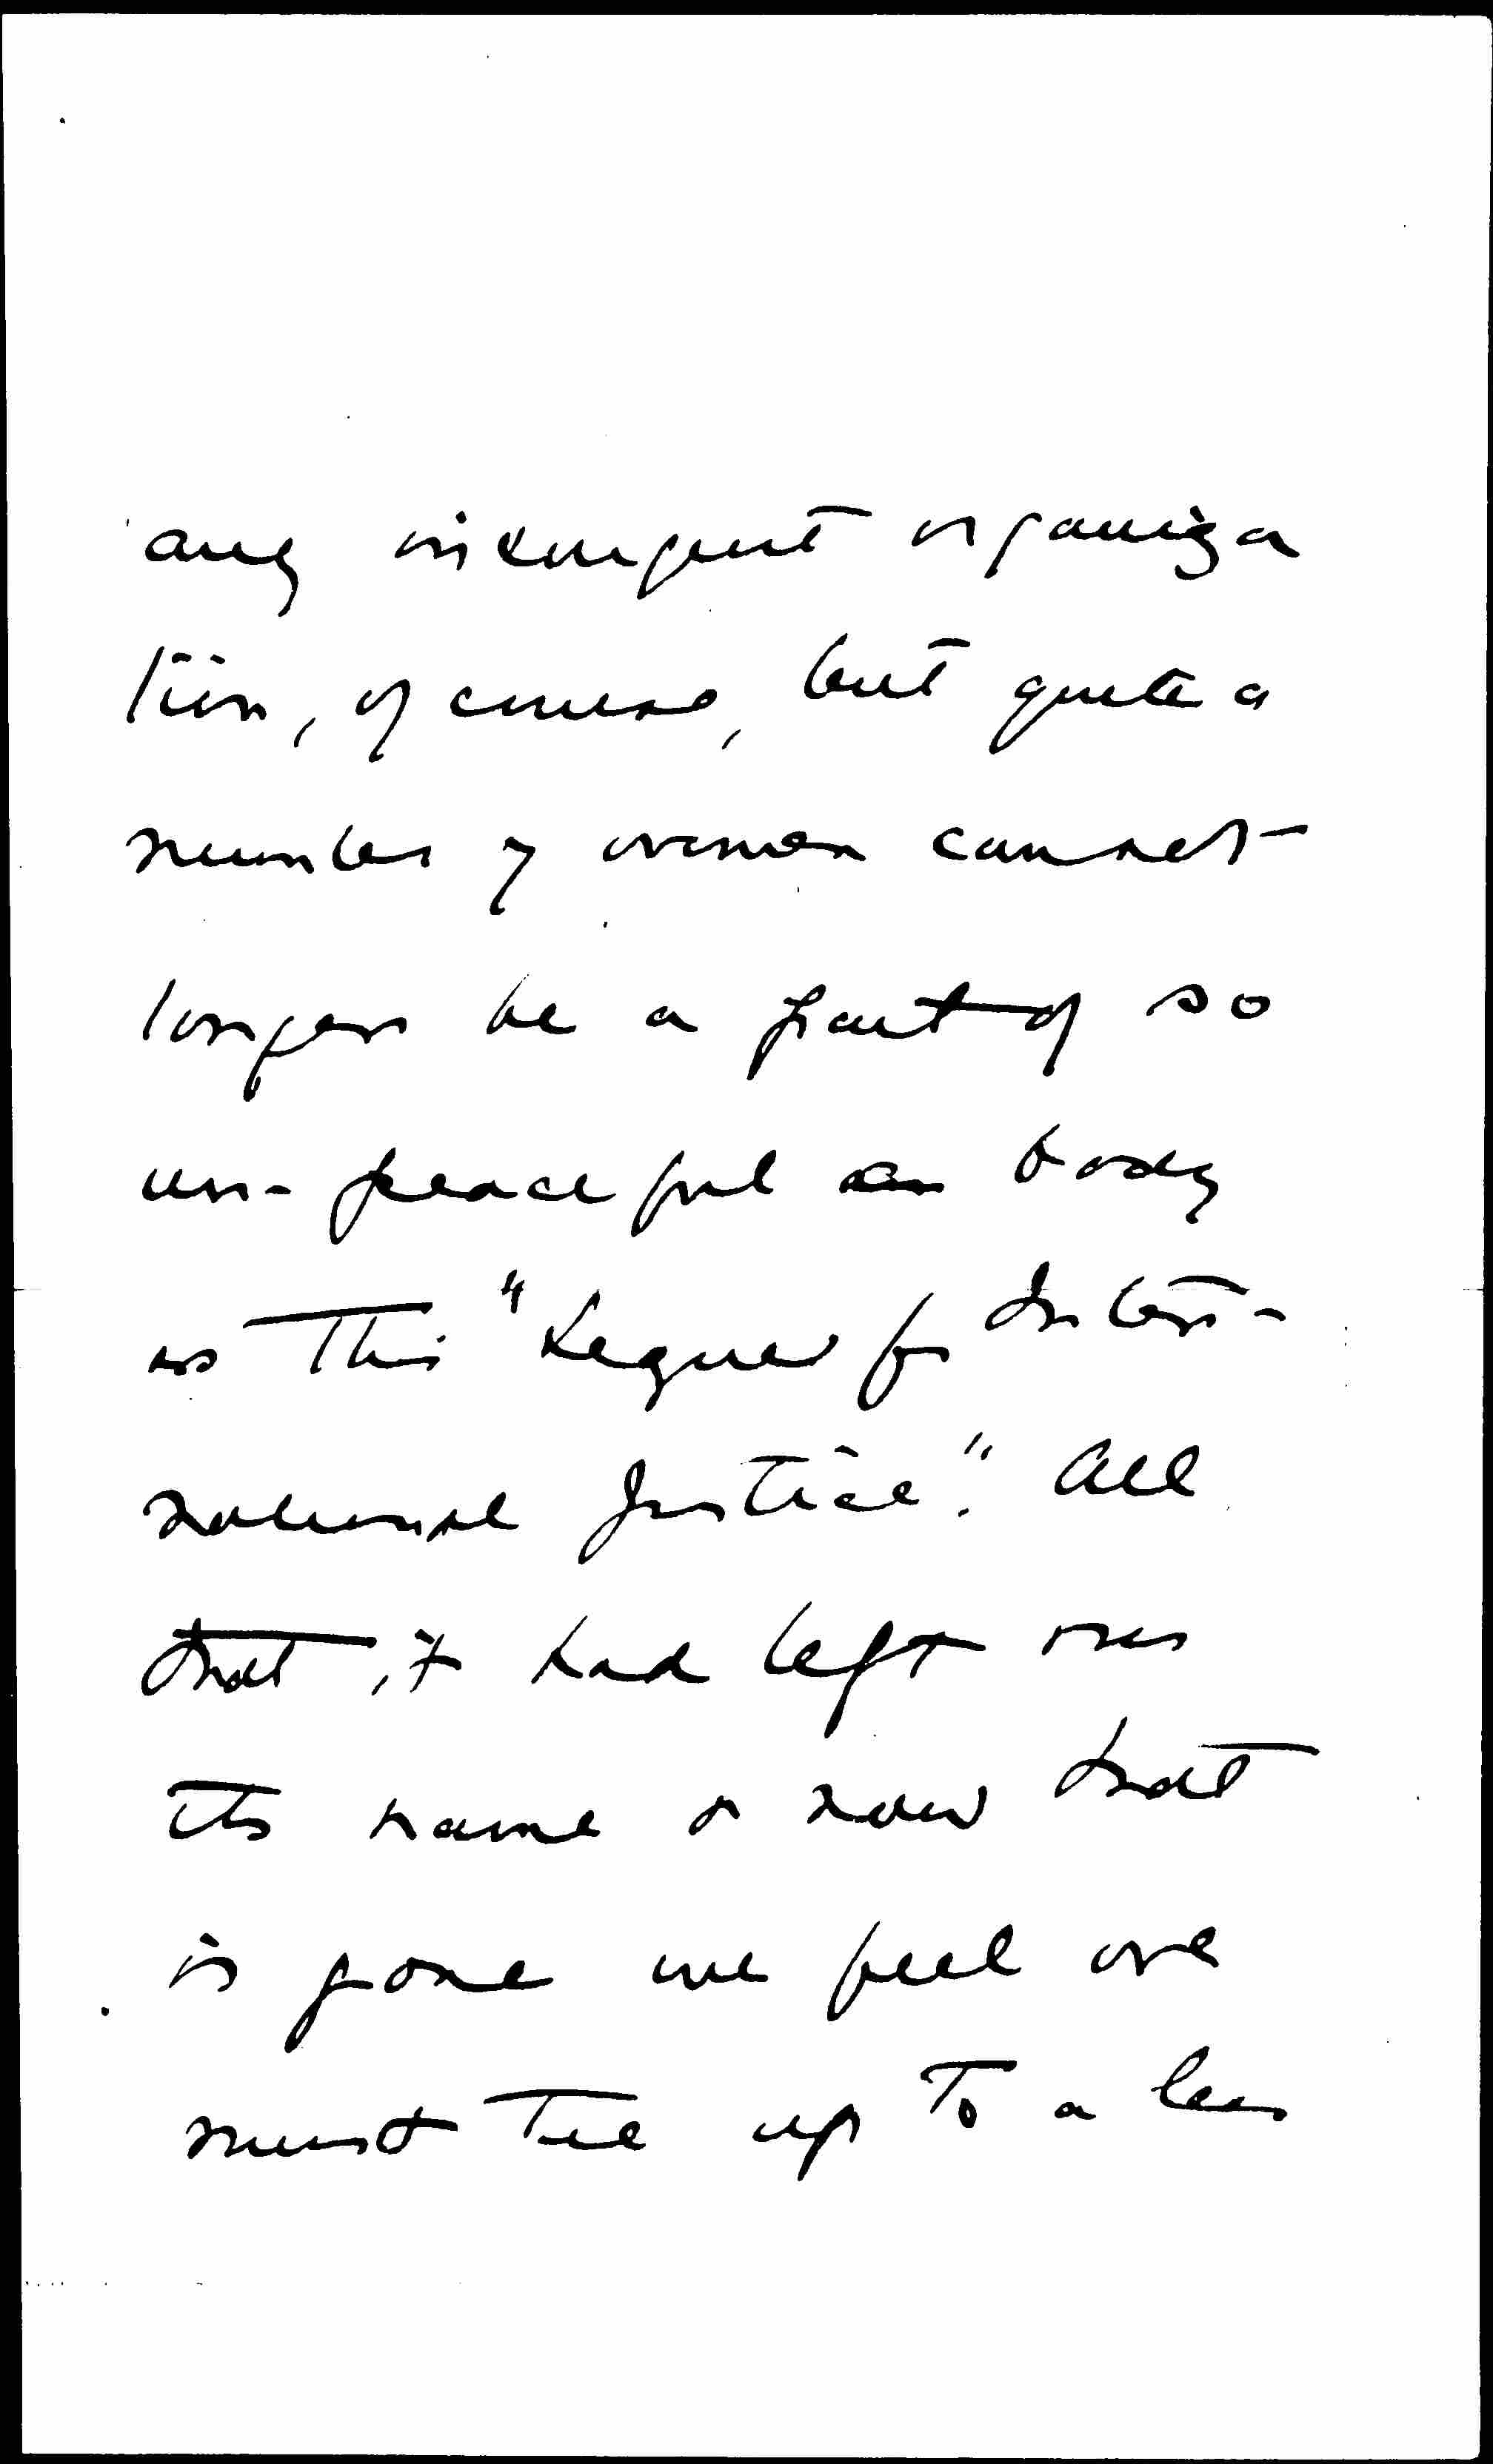 any insurgent organiza
tion, of course, but quite a
number of women cannot
longer be a part of so
un-peaceful a body
as This "League for Inter-
national Justice". All
that it had left was
its name & now that
is gone we feel we
must tie up To a less